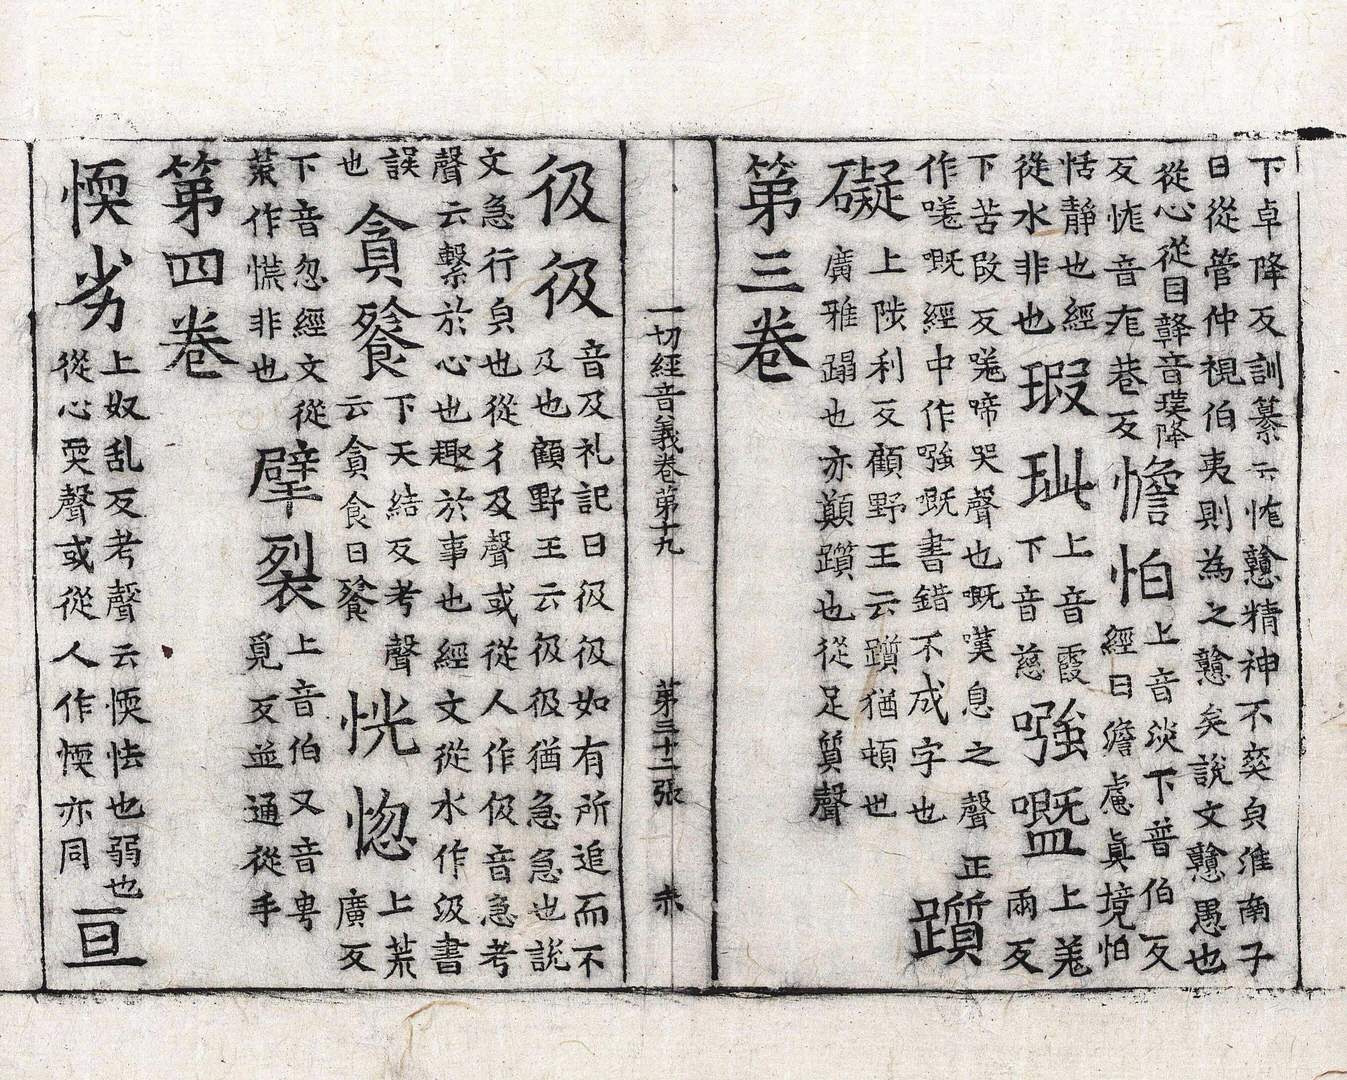 下卓降反訓纂云惷戇精神不爽皃淮南子
曰從管仲視伯夷則為之戇矣說文戇愚也
從心從目贛音璞降
反惷音龙巷反憺怕上音淡下普伯反
經曰憺處真境怕
恬靜也經
從水非也瑕玼上音霞
下音慈嗴嘅上羗
兩反
下苦改反嗴啼哭聲也嘅嘆息之聲正
作嗴嘅經中作嗴嘅書錯不成字也躓
礙上陟利反顧野王云躓猶頓也
廣雅蹋也亦顛躓也從足質聲
第三卷
一切經音義卷第十九 第三十二張
彶彶音及礼記曰彶彶如有所追而不
及也顧野王云彶彶猶急急也說
文急行皃也從彳及聲或從人作伋音急考
聲云繫於心也趣於事也經文從水作汲書
誤
也貪餮下天結反考聲
云貪食曰餮恍惚上荒
廣反
下音忽經文從
荒作慌非也擘裂上音伯又音甹
覓反並通從手
第四卷
愞劣上奴乱反考聲云愞怯也弱也
從心耎聲或從人作愞亦同亘